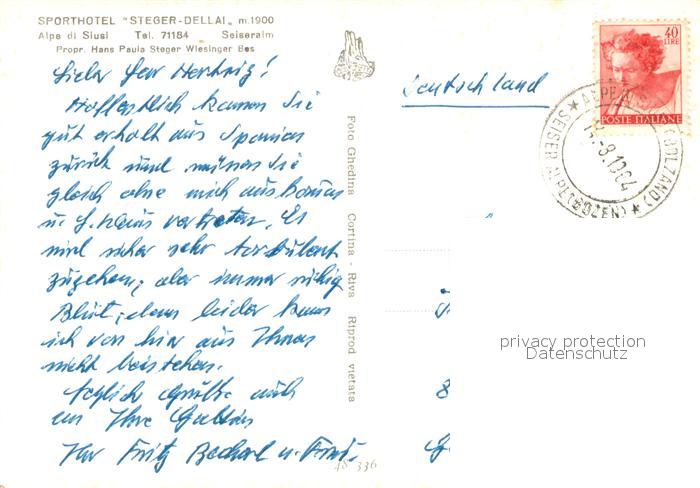 SPORTHOTEL "STEGER-DELLAI" m.1900
Alpe di Siusi Tel. 71184 Seiseralm
Propr. Hans Paula Steger Wiesinger Bes
Lieber Herr Hertwig!
Hoffentlich kamen Sie
gut erholt aus Spanien
zurück und müssen Sie
gleich ohne mich aus
u. vertreten. Es
wird sicher sehr turbulent
zugehen; aber immer ruhig
Blut; denn leider kann
ich von hier aus Ihnen
nicht beistehen.
Herzliche Grüße auch
an Ihre Gattin
Ihr Fritz u. Frau.
Foto Ghedina Cortina - Riva Riprod vietata
48 336
Deutschland
40
LIRE
POSTE ITALIANE
SEISER ALPE (BOZEN)
(BOLZANO)
privacy protection
Datenschutz